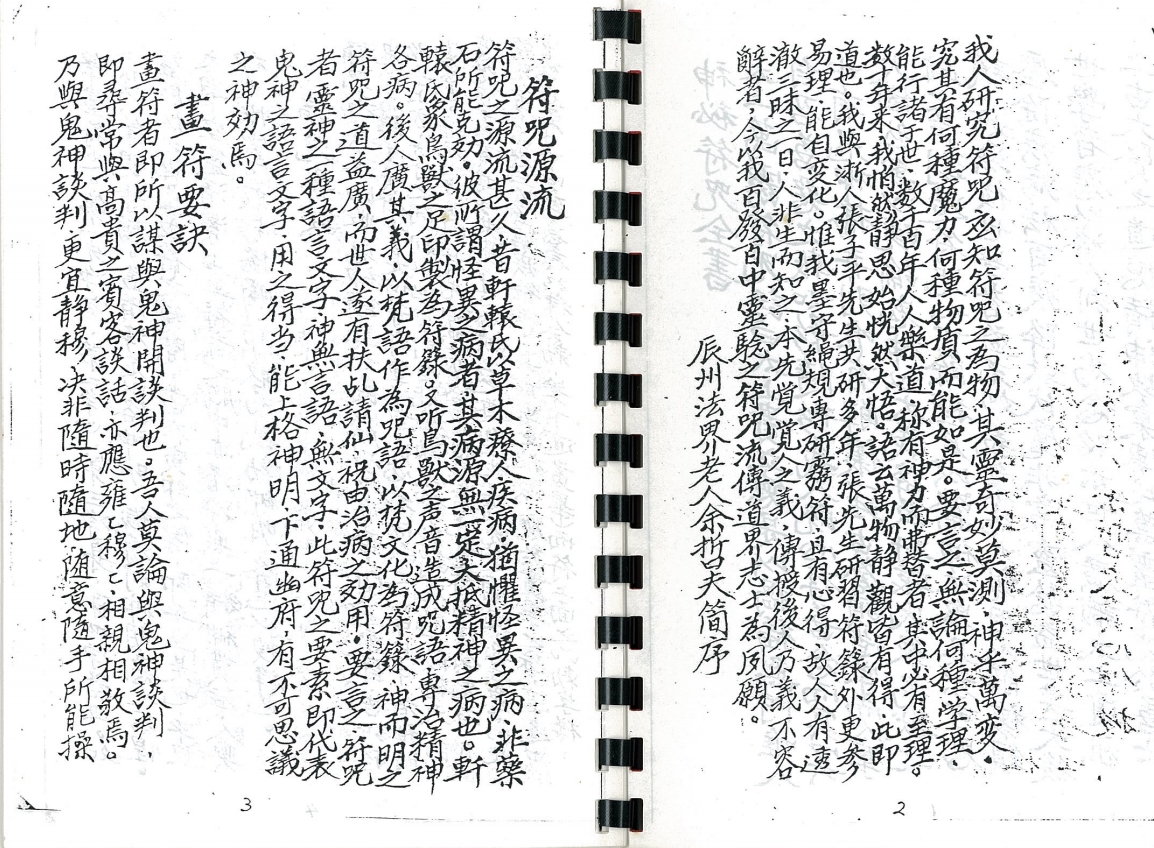 我人研究符咒應知符咒之為物，其靈奇妙莫測，神乎萬變，
究其有何種魔力，何種物質，而能如是。要言之，無論何種学理，
能行諸于世，数千百年，人人樂道，称有神力而弗替者，其中必有至理。
数十年来，我悄然静思，始恍然大悟。語云萬物静觀皆有得，此即
道也。我與浙人張子平先生共研多年，張先生研習符籙外，更参
易理，能自变化。惟我墨守繩規，專研靈符，且有心得，故人人有透
澈三昧之一日，人非生而知之，本先覚覚人之義，傳授後人乃義不容
辭者，今以我百發百中靈驗之符咒流傳道界志士為夙願。
辰州法界老人余哲夫简序
2
符咒源流
符咒之源流甚久，昔軒轅氏以草木療人疾病，猶懼怪異之病，非藥
石所能克効。彼所謂怪異之病者，其病源無一定，大抵精神之病也。軒
轅氏象鳥獸之足印製為符籙。又听鳥獸之声音造成咒語，專治精神
各病。後人廣其義，以梵語作為咒語，以梵文化為符籙，神而明之
符咒之道益廣，而世人遂有扶乩請仙，祝由治病之効用。要言之，符咒
者靈神之一種語言文字，神無言語，無文字，此符咒之要素即代表
鬼神之語言文字，用之得当，能上格神明，下通幽府，有不可思議
之神効焉。
畫符要訣
畫符者即所以謀與鬼神開談判也。吾人莫論與鬼神談判，
即尋常與高貴之賓客談話，亦應雍々穆々，相親相敬焉。
乃與鬼神談判更宜静穆，决非隨時隨地，随意隨手所能操
3